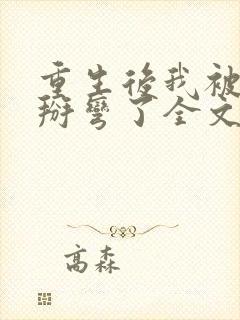 重生後我被
掰彎了全文
高森